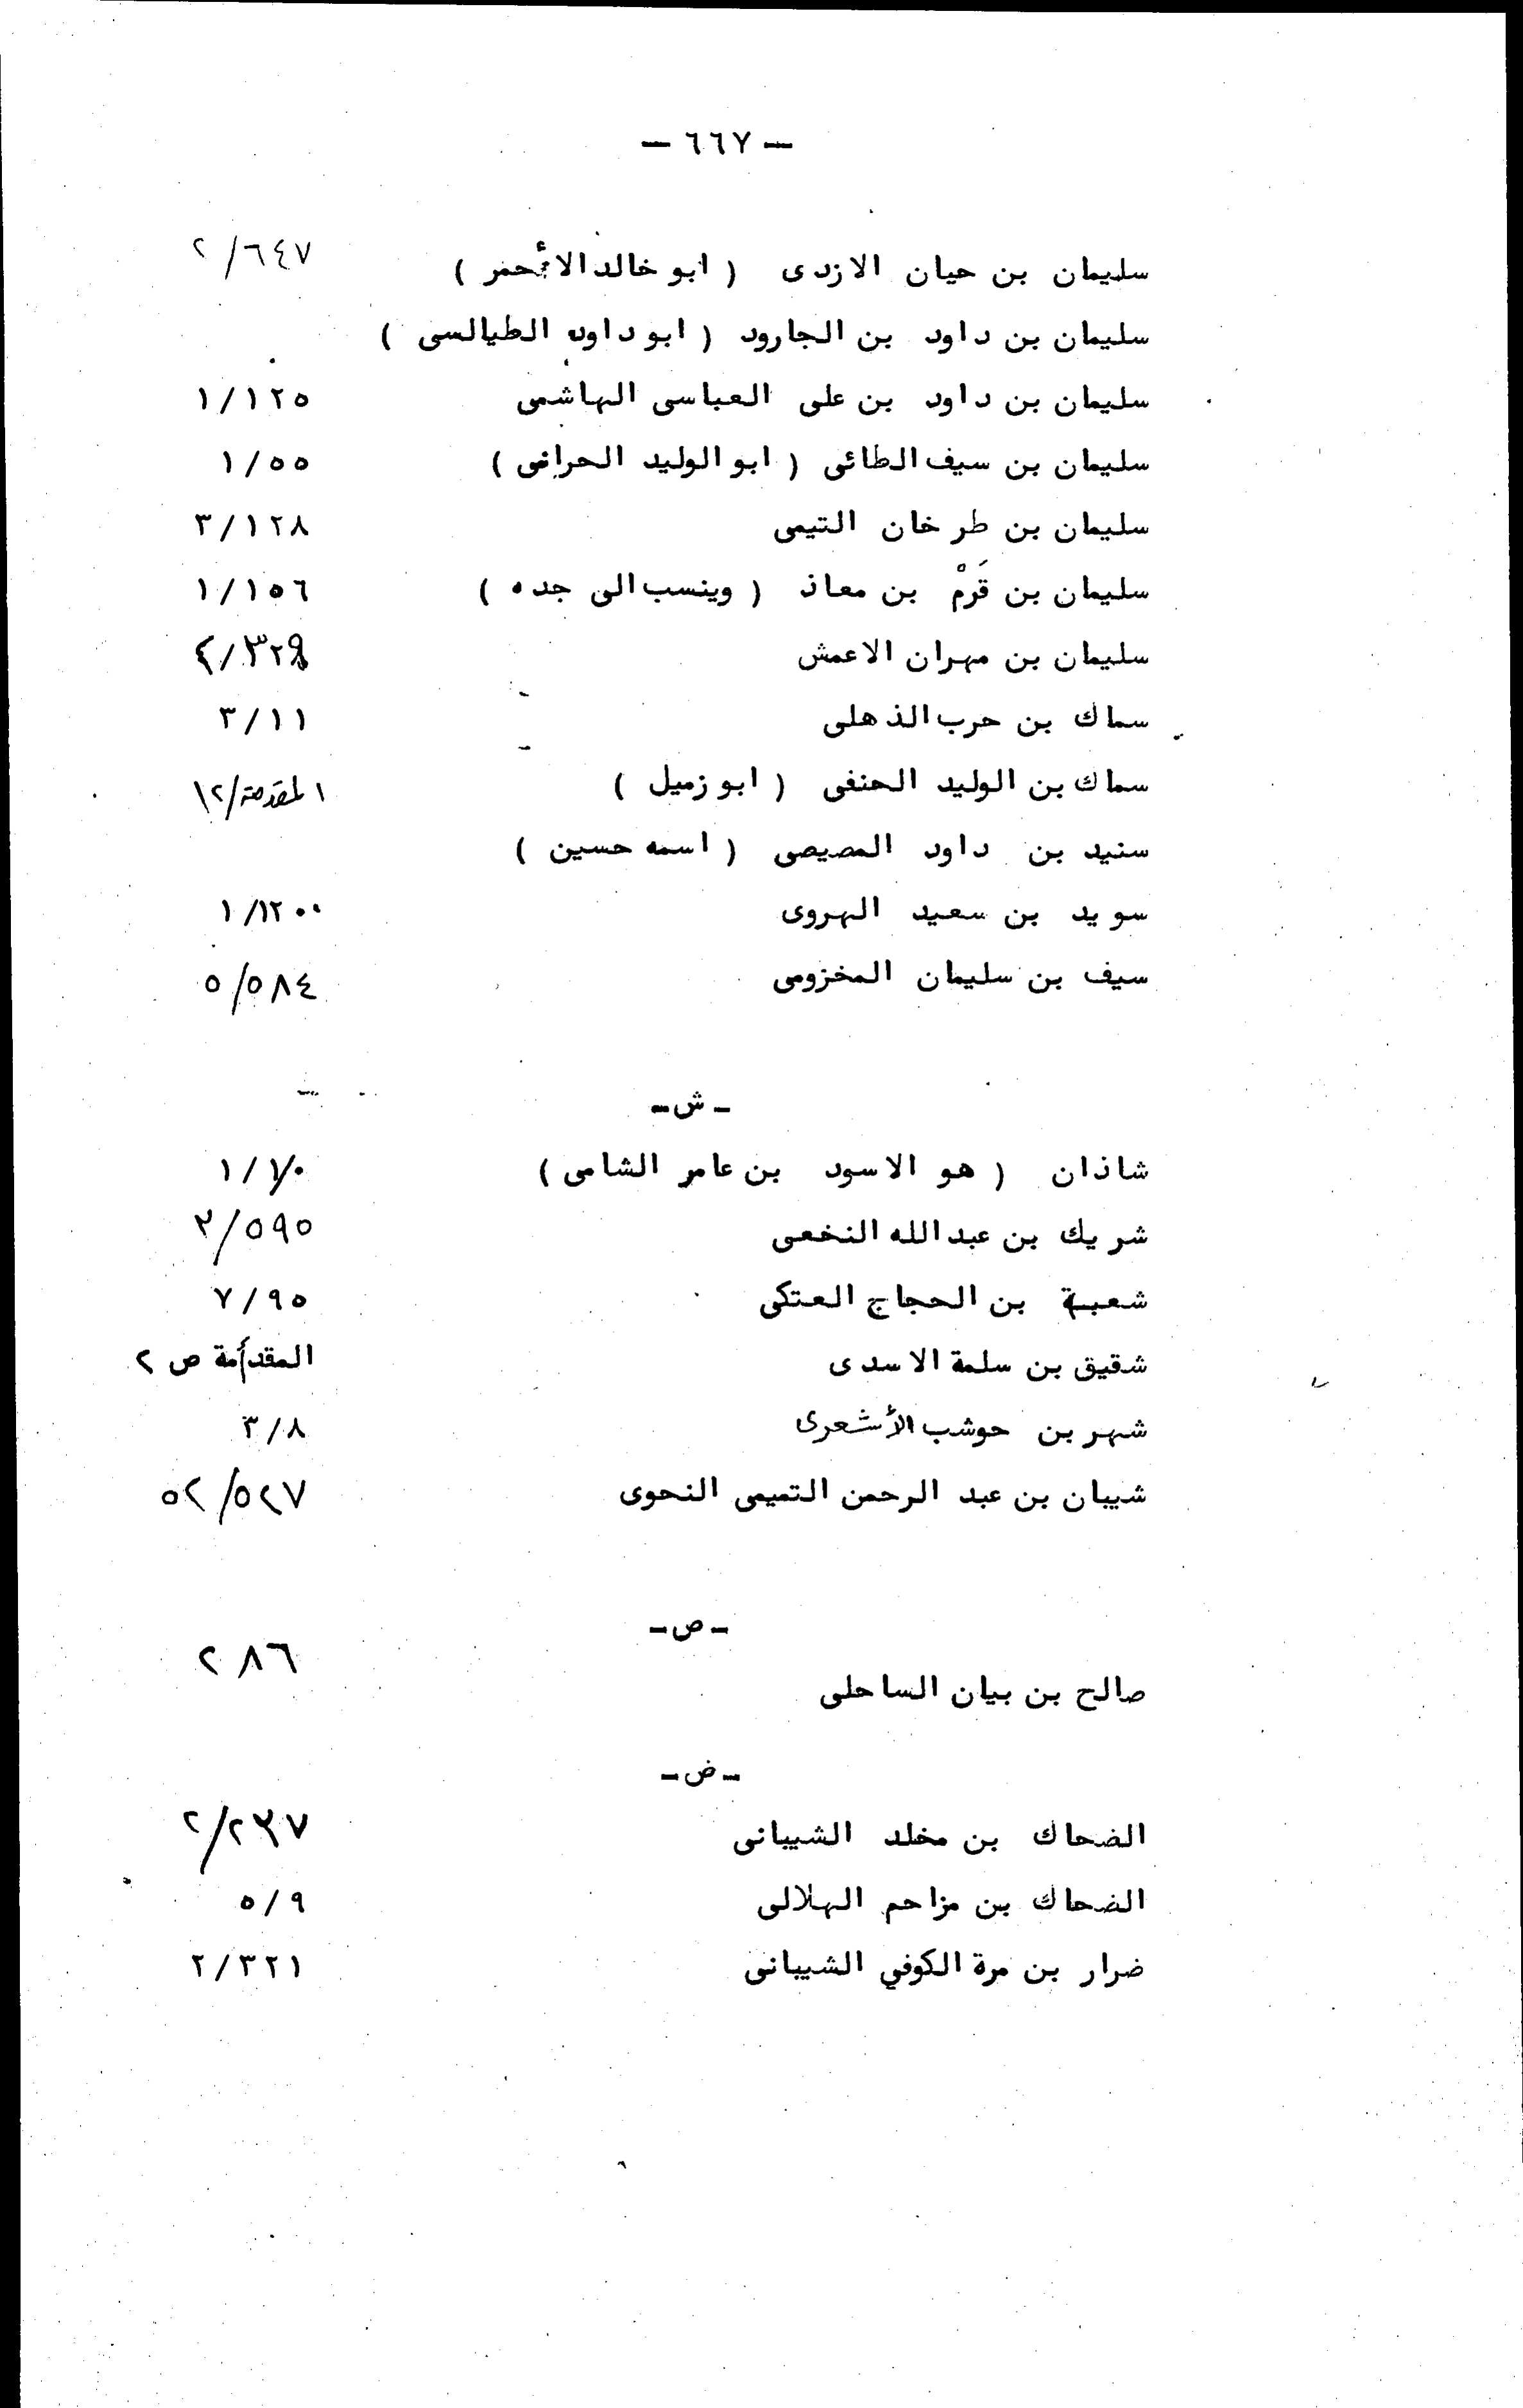 — ٦٦٧ —
سليمان بن حيان الازدى ( ابو خالد الأحمر ) ٢/٦٤٧
سليمان بن داود بن الجارود ( ابو داود الطيالسى )
سليمان بن داود بن على العباسى الهاشمى ١/١٢٥
سليمان بن سيف الطائى ( ابو الوليد الحرانى ) ١/٥٥
سليمان بن طرخان التيمى ٣/١٢٨
سليمان بن قَرْم بن معاذ ( وينسب الى جده ) ١/١٥٦
سليمان بن مهران الاعمش
سماك بن حرب الذهلى ٣/١١
سماك بن الوليد الحنفى ( ابو زميل ) المقدمة/١٢
سنيد بن داود المصيصى ( اسمه حسين )
سويد بن سعيد الهروى
سيف بن سليمان المخزومى ٥/٥٨٤
- ش -
شاذان ( هو الاسود بن عامر الشامى )
شريك بن عبد الله النخعى ٢/٥٩٥
شعبة بن الحجاج العتكى ٧/٩٥
شقيق بن سلمة الاسدى المقدمة ص ٢
شهر بن حوشب الأشعرى ٣/٨
شيبان بن عبد الرحمن التميمى النحوى ٥٢/٥٢٧
- ص -
٢٨٦
صالح بن بيان الساحلى
- ض -
الضحاك بن مخلد الشيبانى
الضحاك بن مزاحم الهلالى ٥/٩
ضرار بن مرة الكوفي الشيبانى ٢/٣٢١